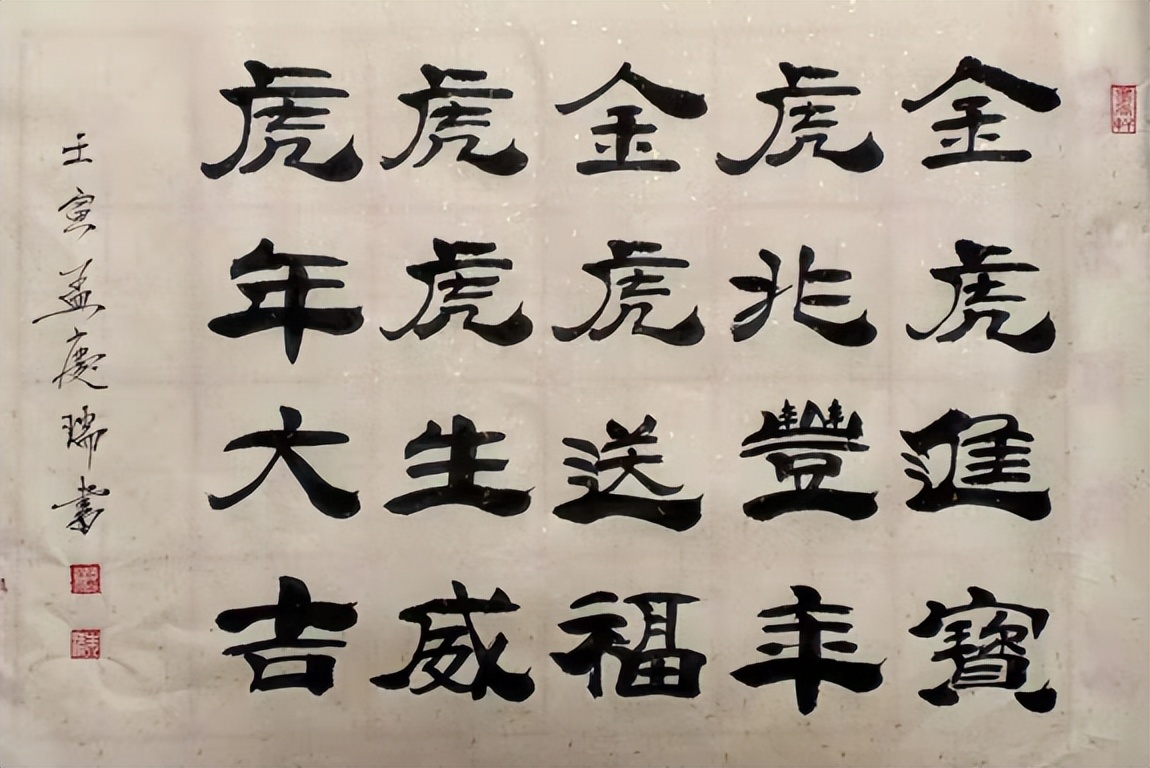 金虎進寶
虎兆豐年
金虎送福
虎虎生威
虎年大吉
壬寅孟慶瑞書